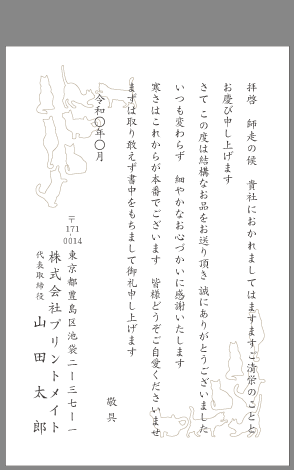 拝啓　師走の候　貴社におかれましてはますますご清栄のことと
お慶び申し上げます
さて この度は結構なお品をお送り頂き 誠にありがとうございました
いつも変わらず　細やかなお心づかいに感謝いたします
寒さはこれからが本番でございます　皆様どうぞご自愛くださいませ
まずは取り敢えず書中をもちまして御礼申し上げます
敬具
令和〇年〇月
〒171-0014
東京都豊島区池袋二ー三七ー一
株式会社プリントメイト
代表取締役　山田太郎